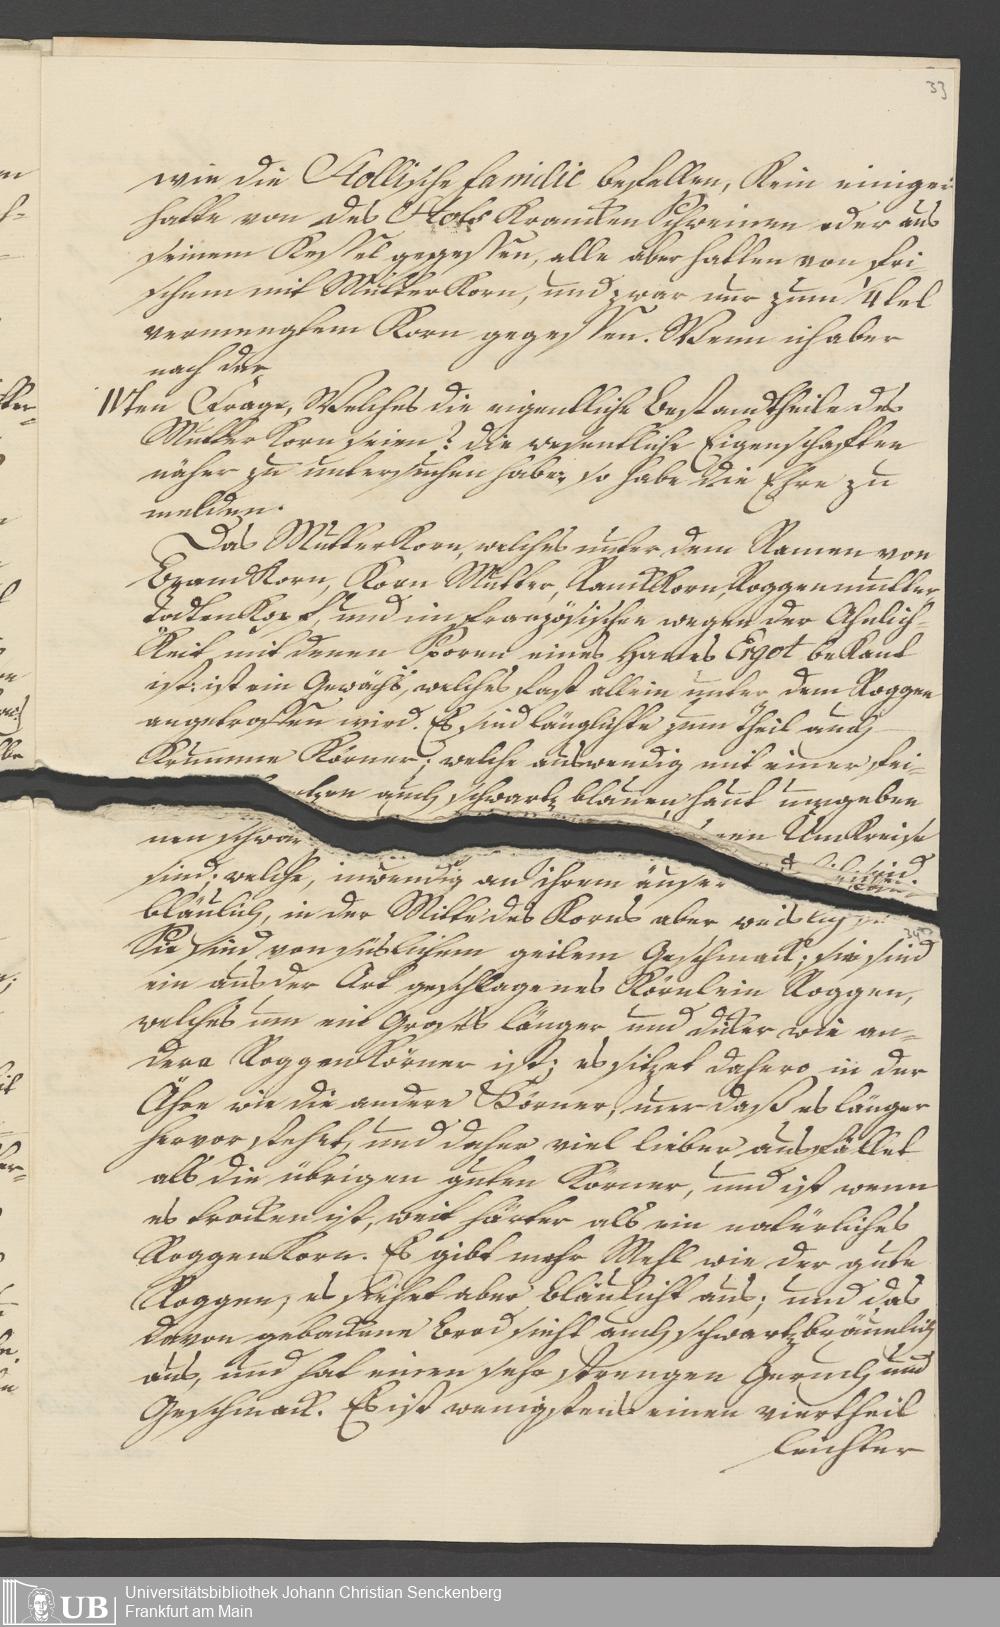 33
wie die Stollische familie befallen, Kein einiger
hatte von des Stols Krancken Schweinen oder aus
seinem Kessel gegessen, alle aber hatten von fri-
schem mit Mutter Korn, und zwar nur zum 1/4tel
vermengtem Korn gegessen. Wenn ich aber
nach der
IVten Frage, Welches die eigentliche Bestandtheile des
Mutter Korn seien? die wesentliche Eigenschafften
näher zu untersuchen habe, so habe die Ehre zu
melden.
Das Mutter Korn, welches unter dem Namen von
Brand Korn, Korn Mutter, Roggenmutter,
Todten Kopf, und im französischen wegen der Ähnlich-
Keit mit denen Sporen eines Hanes Ergot bekant
ist: ist ein Gewächs, welches fast allein unter dem Roggen
angetroffen wird. Es sind länglichte zum Theil auch
Krumme Körner; welche auswendig mit einer fei-
auch schwartz blauen haut umgeben
nen schwar Umkreise
sind; welche, inwendig an ihrem äuser
bläulich, in der Mitte des Korns aber weis
Sie sind von süslichem geilem Geschmack; sie sind
ein aus der Art geschlagenes Körnlein Roggen,
welches um ein Groses länger und dicker wie an-
dere Roggen Körner ist; es sitzet dahero in der
Ähre wie die andere Körner, nur daß es länger
hervor stehet, und daher viel lieber ausfället
als die übrigen guten Körner, und ist wenn
es trocken ist, weit härter als ein natürliches
Roggen Korn. Es gibt mehr Mehl wie der gute
Roggen, es siehet aber bläulicht aus; und das
davon gebackene Brod sieht auch schwartzbräunlich
aus, und hat einen sehr strengen Geruch und
Geschmack. Es ist wenigstens einen viertheil
leichter
UB
Universitätsbibliothek Johann Christian Senckenberg
Frankfurt am Main